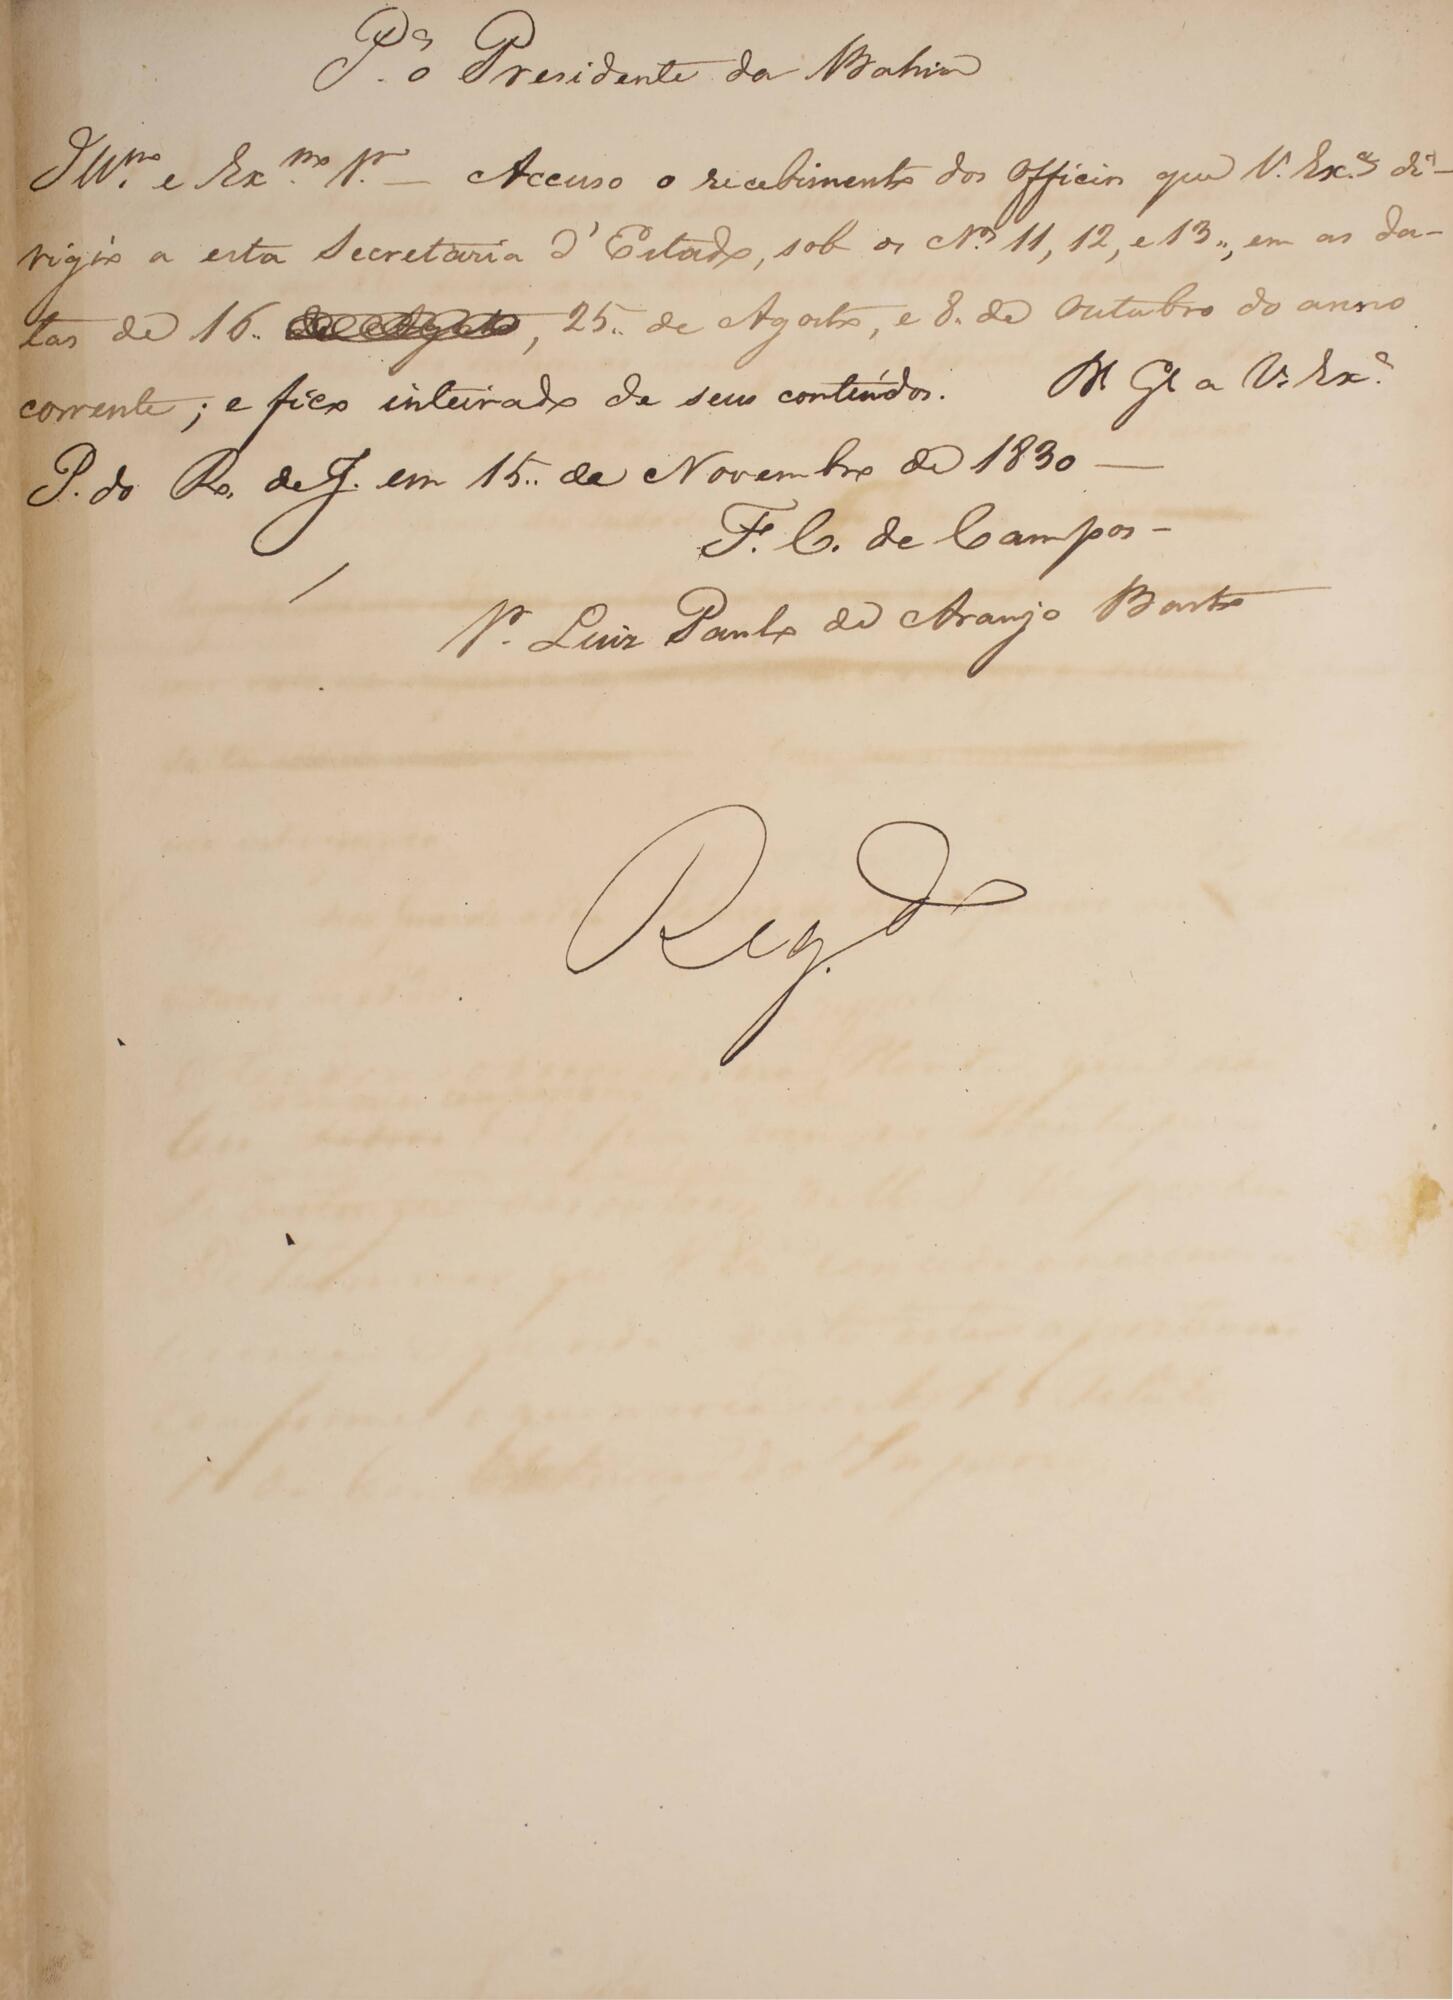 P.ª o Presidente da Bahia
Ill.mo e Ex.mo Sr. — Accuso o recebimento dos Officios que V. Ex.ª di-
rigio a esta Secretaria d'Estado, sob os N.os 11, 12, e 13.., em as da-
tas de 16.. de Agosto, 25.. de Agosto, e 8.. de Outubro do anno
corrente; e fico inteirado de seus contéudos. Ds Ge a V. Ex.ª
P. do R. de J. em 15.. de Novembro de 1830 —
F. C. de Campos —
Sr. Luiz Paulo de Araujo Basto
Reg.do